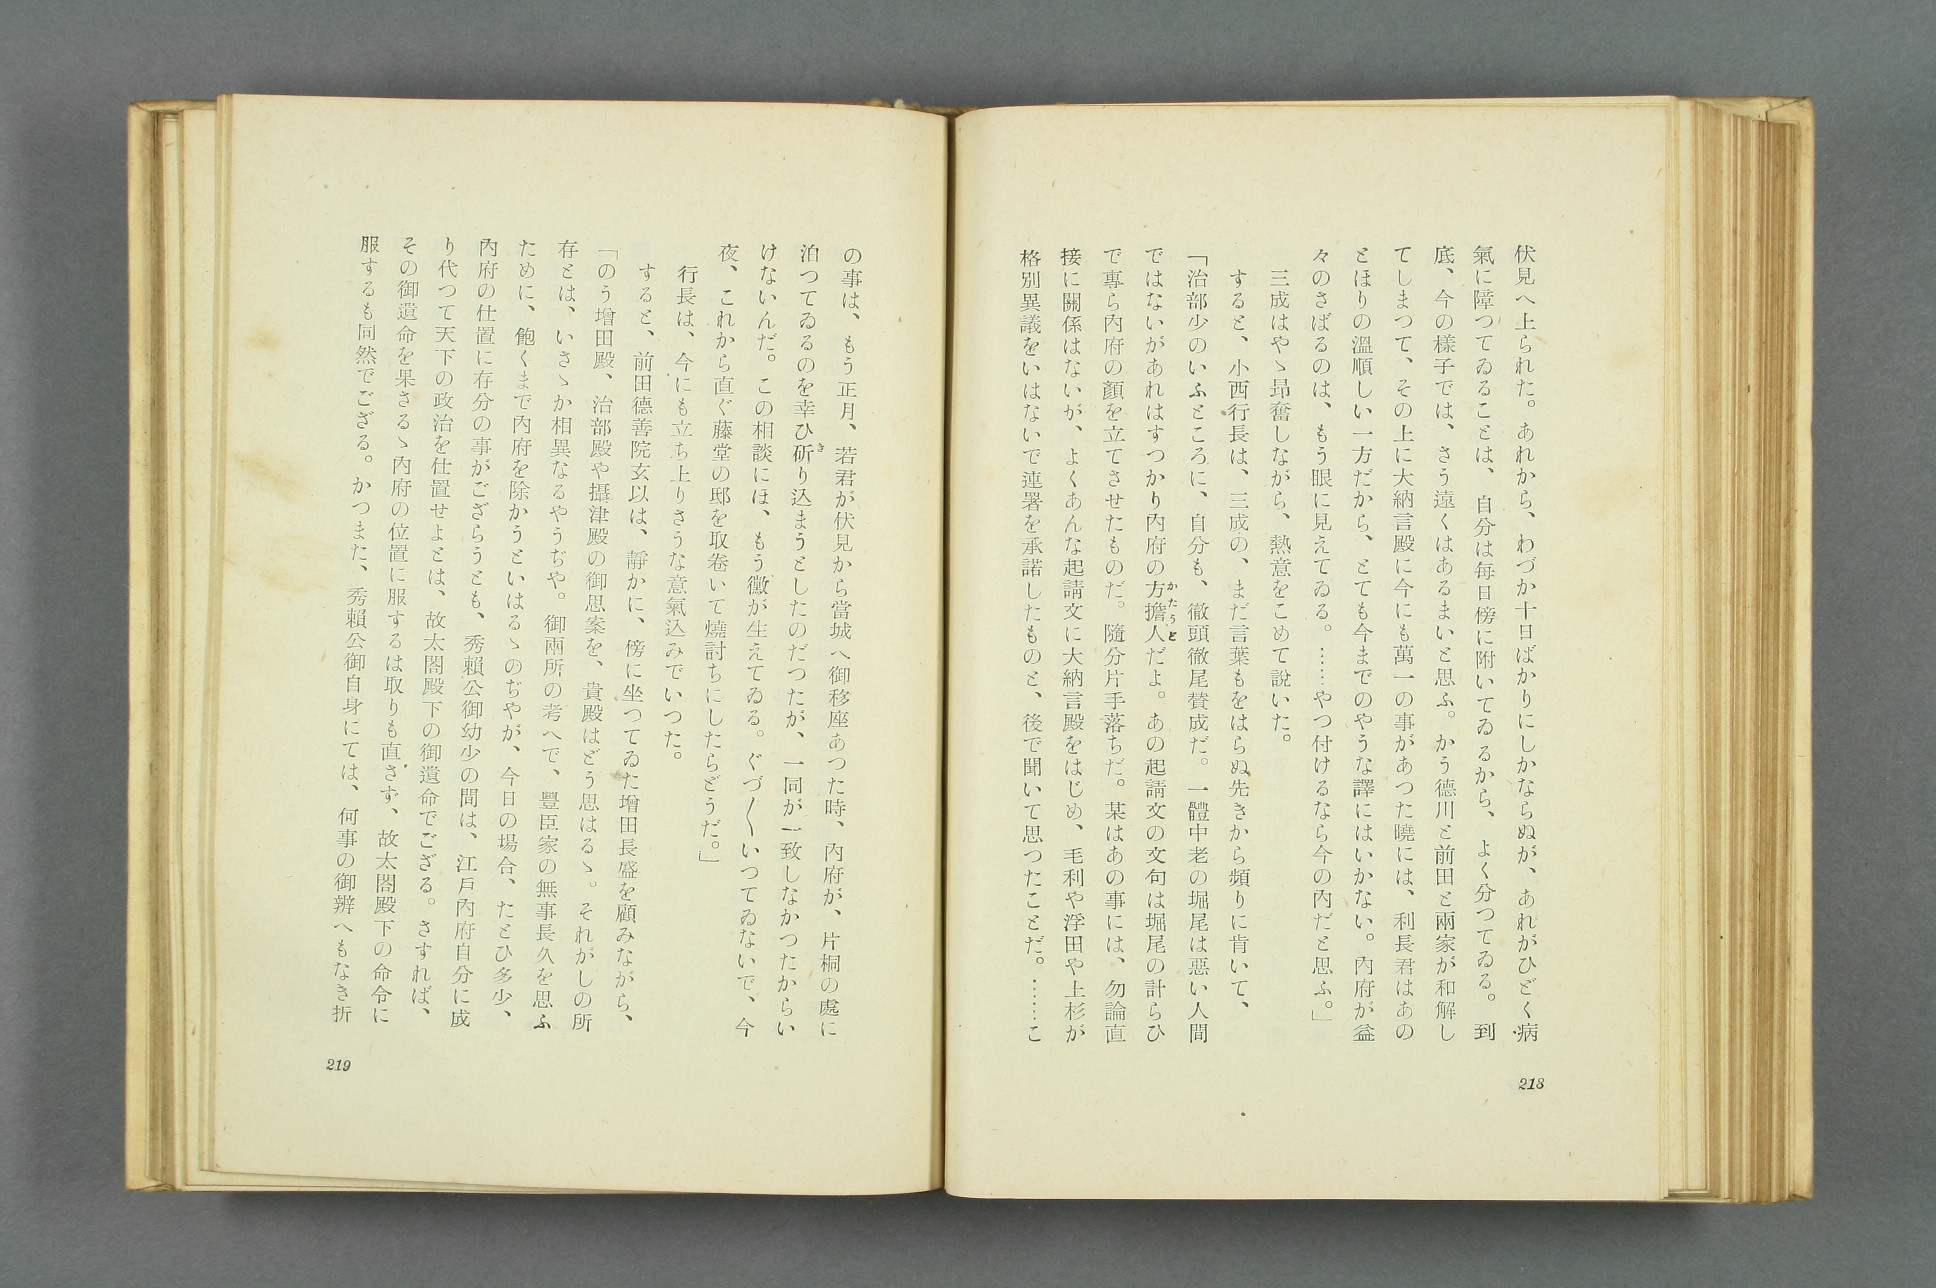 伏見へ上られた。あれから、わづか十日ばかりにしかならぬが、あれがひどく病
氣に障つてゐることは、自分は毎日傍に附いてゐるから、よく分つてゐる。到
底、今の樣子では、さう遠くはあるまいと思ふ。かう德川と前田と兩家が和解し
てしまつて、その上に大納言殿に今にも萬一の事があつた曉には、利長君はあの
とほりの溫順しい一方だから、とても今までのやうな譯にはいかない。內府が益
々のさばるのは、もう眼に見えてゐる。……やつ付けるなら今の內だと思ふ。」
三成はやゝ昻奮しながら、熱意をこめて說いた。
すると、小西行長は、三成の、まだ言葉もをはらぬ先きから頻りに肯いて、
「治部少のいふところに、自分も、徹頭徹尾賛成だ。一體中老の堀尾は惡い人間
ではないがあれはすつかり內府の方擔人だよ。あの起請文の文句は堀尾の計らひ
かたうど
で專ら內府の顏を立てさせたものだ。隨分片手落ちだ。某はあの事には、勿論直
接に關係はないが、よくあんな起請文に大納言殿をはじめ、毛利や浮田や上杉が
格別異議をいはないで連署を承諾したものと、後で聞いて思つたことだ。……こ
218
の事は、もう正月、若君が伏見から當城へ御移座あつた時、內府が、片桐の處に
泊つてゐるのを幸ひ斫り込まうとしたのだつたが、一同が一致しなかつたからい
き
けないんだ。この相談にほ、もう黴が生えてゐる。ぐづ〱いつてゐないで、今
夜、これから直ぐ藤堂の邸を取卷いて燒討ちにしたらどうだ。」
行長は、今にも立ち上りさうな意氣込みでいつた。
すると、前田德善院玄以は、靜かに、傍に坐つてゐた增田長盛を顧みながら、
「のう增田殿、治部殿や攝津殿の御思案を、貴殿はどう思はるゝ。それがしの所
存とは、いさゝか相異なるやうぢや。御兩所の考へで、豐臣家の無事長久を思ふ
ために、飽くまで內府を除かうといはるゝのぢやが、今日の場合、たとひ多少、
內府の仕置に存分の事がござらうとも、秀賴公御幼少の間は、江戶內府自分に成
り代つて天下の政治を仕置せよとは、故太閤殿下の御遺命でござる。さすれば、
その御遺命を果さるゝ內府の位置に服するは取りも直さず、故太閤殿下の命令に
服するも同然でござる。かつまた、秀賴公御自身にては、何事の御辨へもなき折
219